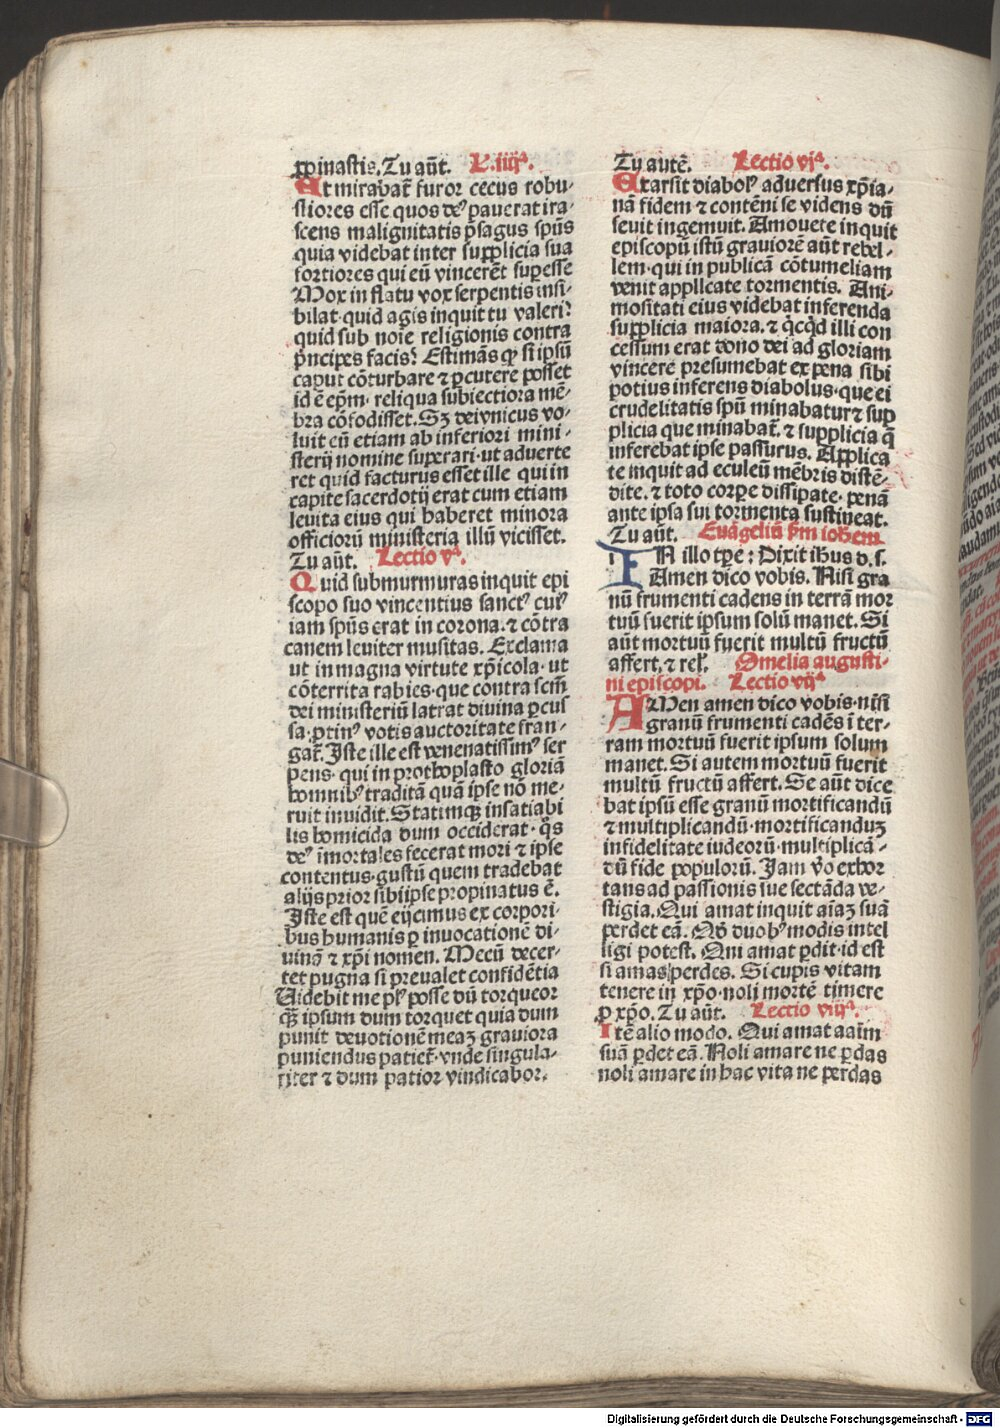 ꝓpinastis. Tu aūt. L. iiijª.
Et mirabat᷑ furor cecus robu⸗
stiores esse quos deꝰ pauerat ira⸗
scens malignitatis p̄sagus spūs
quia videbat inter supplicia sua
fortiores qui eū vincerēt supesse
Mox in flatu vox serpentis insi⸗
bilat·quid agis inquit tu valeri?
quid sub noīe religionis contra
p̄ncipes facis? Estimās ꝙ si ipsū
caput cōturbare ⁊ ꝑcutere posset
id ē epm̄· reliqua subiectiora mē⸗
bra cōfodisset. Sꝫ deivnicus vo⸗
luit eū etiam ab inferiori mini⸗
sterij nomine superari·ut adverte
ret quid facturus esset ille qui in
capite sacerdotij erat cum etiam
levita eius qui haberet minora
officiorū ministeria illū vicisset.
Tu aūt. Lectio vª.
Quid submurmuras inquit epi
scopo suo vincentius sanctꝰ cuiꝰ
iam spūs erat in corona.⁊ cōtra
canem leviter musitas. Exclama
ut in magna virtute xp̄icola·ut
cōterrita rabies·que contra scm̄
dei ministeriū latrat divina ꝑcus
sa·ꝓtinꝰ votis auctoritate fran⸗
gat᷑. Iste ille est venenatissimꝰ ser
pens·qui in prothoplasto gloriā
homnibꝰ traditā quā ipse nō me⸗
ruit invidit. Statimqꝫ insatiabi
lis homicida dum occiderat·q̄s
deꝰ īmortales fecerat mori ⁊ ipse
contentus·gustū quem tradebat
alijs prior sibiipse propinatus ē.
Iste est quē eijcimus ex corpori⸗
bus humanis ꝑ invocationē di⸗
vinā ⁊ xp̄i nomen. Mecū decer⸗
tet pugna si prevalet confidētia
Videbit me plꝰ posse dū torqueor
qꝫ ipsum dum torquet quia dum
punit devotionē meaꝫ graviora
puniendus patiet᷑·vnde singula⸗
riter ⁊ dum patior vindicabor.
Tu autē. Lectio vjª.
Exarsit diabolꝰ adversus xp̄ia⸗
nā fidem ⁊ contēni se videns dū
sevit ingemuit. Amovete inquit
episcopū istū graviorē aūt rebel⸗
lem·qui in publicā cōtumeliam
venit applicate tormentis. Ani⸗
mositati eius videbat inferenda
supplicia maiora.⁊ q̇cqd illi con
cessum erat dono dei ad gloriam
vincere presumebat ex pena sibi
potius inferens diabolus·que ei
crudelitatis spū minabatur⁊ sup
plicia que minabat᷑.⁊ supplicia q̄
inferebat ipse passurus. Applica
te inquit ad eculeū mēbris distē⸗
dite.⁊ toto corpe dissipate·penā
ante ipsa sui tormenta sustineat.
Tu aūt. Euāgeliū ẜm ioh̄em
IN illo tp̄e: Dixit ihūs d. s.
Amen dico vobis. Nisi gra
nū frumenti cadens in terrā mor
tuū fuerit ipsum solū manet. Si
aūt mortuū fuerit multū fructū
affert.⁊ relꝰ. Omelia augusti⸗
ni episcopi. Lectio vijª
AMen amen dico vobis·nisi
granū frumenti cadēs ī ter⸗
ram mortuū fuerit ipsum solum
manet. Si autem mortuū fuerit
multū fructū affert. Se aūt dice
bat ipsū esse granū mortificandū
⁊ multiplicandū·mortificanduꝫ
infidelitate iudeorū·multiplicā⸗
dū fide populorū. Iam v̄o exhor
tans ad passionis sue sectāda ve⸗
stigia. Qui amat inquit aīaꝫ suā
perdet eā. Qḋ duobꝰ modis intel
ligi potest. Qui amat ꝑdit·id est
si amas perdes. Si cupis vitam
tenere in xp̄o·noli mortē timere
ꝓ xp̄o. Tu aūt. Lectio viijª.
Itē alio modo. Qui amat aaīm
suā ꝑdet eā. Noli amare ne ꝑdas
noli amare in hac vita ne perdas
Digitalisierung gefördert durch die Deutsche Forschungsgemeinschaft - DFG